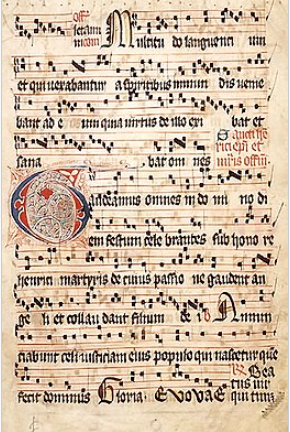 Multitudo languentium
et qui vexabantur a spiritibus inmundis venie
bant ad eum quia virtus de illo exibat et
sanabat omnes
Gaudeamus omnes in domino di
em festum celebrantes sub honore
henrici martyris de cuius passione gaudent an
geli et collaudant filium dei Annun
ciabunt celi iusticiam eius populo qui nascetur que
fecit dominus Gloria Evovae
Beatus vir
qui tim